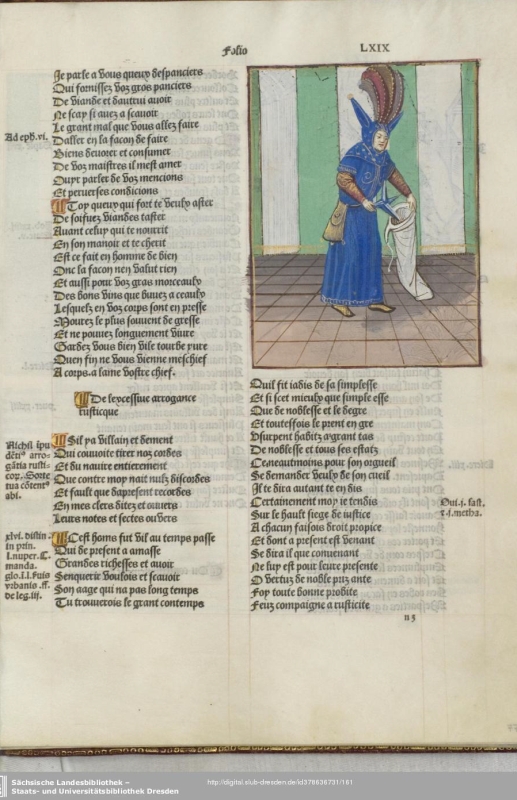 Folio LXIX
Je parle a vous queux despanciers
Qui fornissez voz gros panciers
De viande et dautrui avoir
Ne scay si avez a scavoir
Le grant mal que vous allez faire
Daller en la facon de faire
Biens devorer et consumer
De voz maistres il mest amer
Ouyr parler de voz mencions
Et perverses condicions
Ad eph. vi.
Toy queux qui fort te veulx aster
De soifuez viandes taster
Avant celuy qui te nourrit
En son manoir et te cherit
Est ce fait en homme de bien
Onc la facon nen valut rien
Et aussi pour voz gras morceaulx
Des bons vins que buvez a ceaulx
Lesquelz en voz corps font en presse
Mourez le plus souvent de gresse
Et ne povez longuement vivre
Gardez vous bien vile tourbe yvre
Quen fin ne vous vienne meschief
A corps a lame vostre chief.
De lexcessive arrogance
rusticque
Sil ya villain et dement
Qui couvoite tirer noz cordes
Et du navire entierement
Que contre moy nait nulz discordes
Et fault que dapresent recordes
En mes clers ditez et ouvers
Leurs notes et sectes ouvers
Cest homs fut vil au temps passe
Qui de present a amasse
Grandes richesses et avoir
Senquerir voulois et scavoir
Son aage qui na pas long temps
Tu trouverois le grant contemps
Quil fit iadis de sa simplesse
Et si scet mieulx que simple esse
Que de noblesse et le degre
Et toutesfois le prent en gre
Usurpent habitz a grant tas
De noblesse et tous ses estatz
Ce neautmoins pour son orgueil
Se demander veulx de son cueil
Il te dira autant te en dis
Certainement moy ie tendis
Sur le hault siege de iustice
A chacun faisois droit propice
Et dont a present est venant
Se dira il que convenant
Ne luy est pour leure presente
O vertuz de noble pris ante
Foy toute bonne probite
Feuz compaigne a rusticite
n 5
Sächsische Landesbibliothek –
Staats- und Universitätsbibliothek Dresden
http://digital.slub-dresden.de/id376636731/161